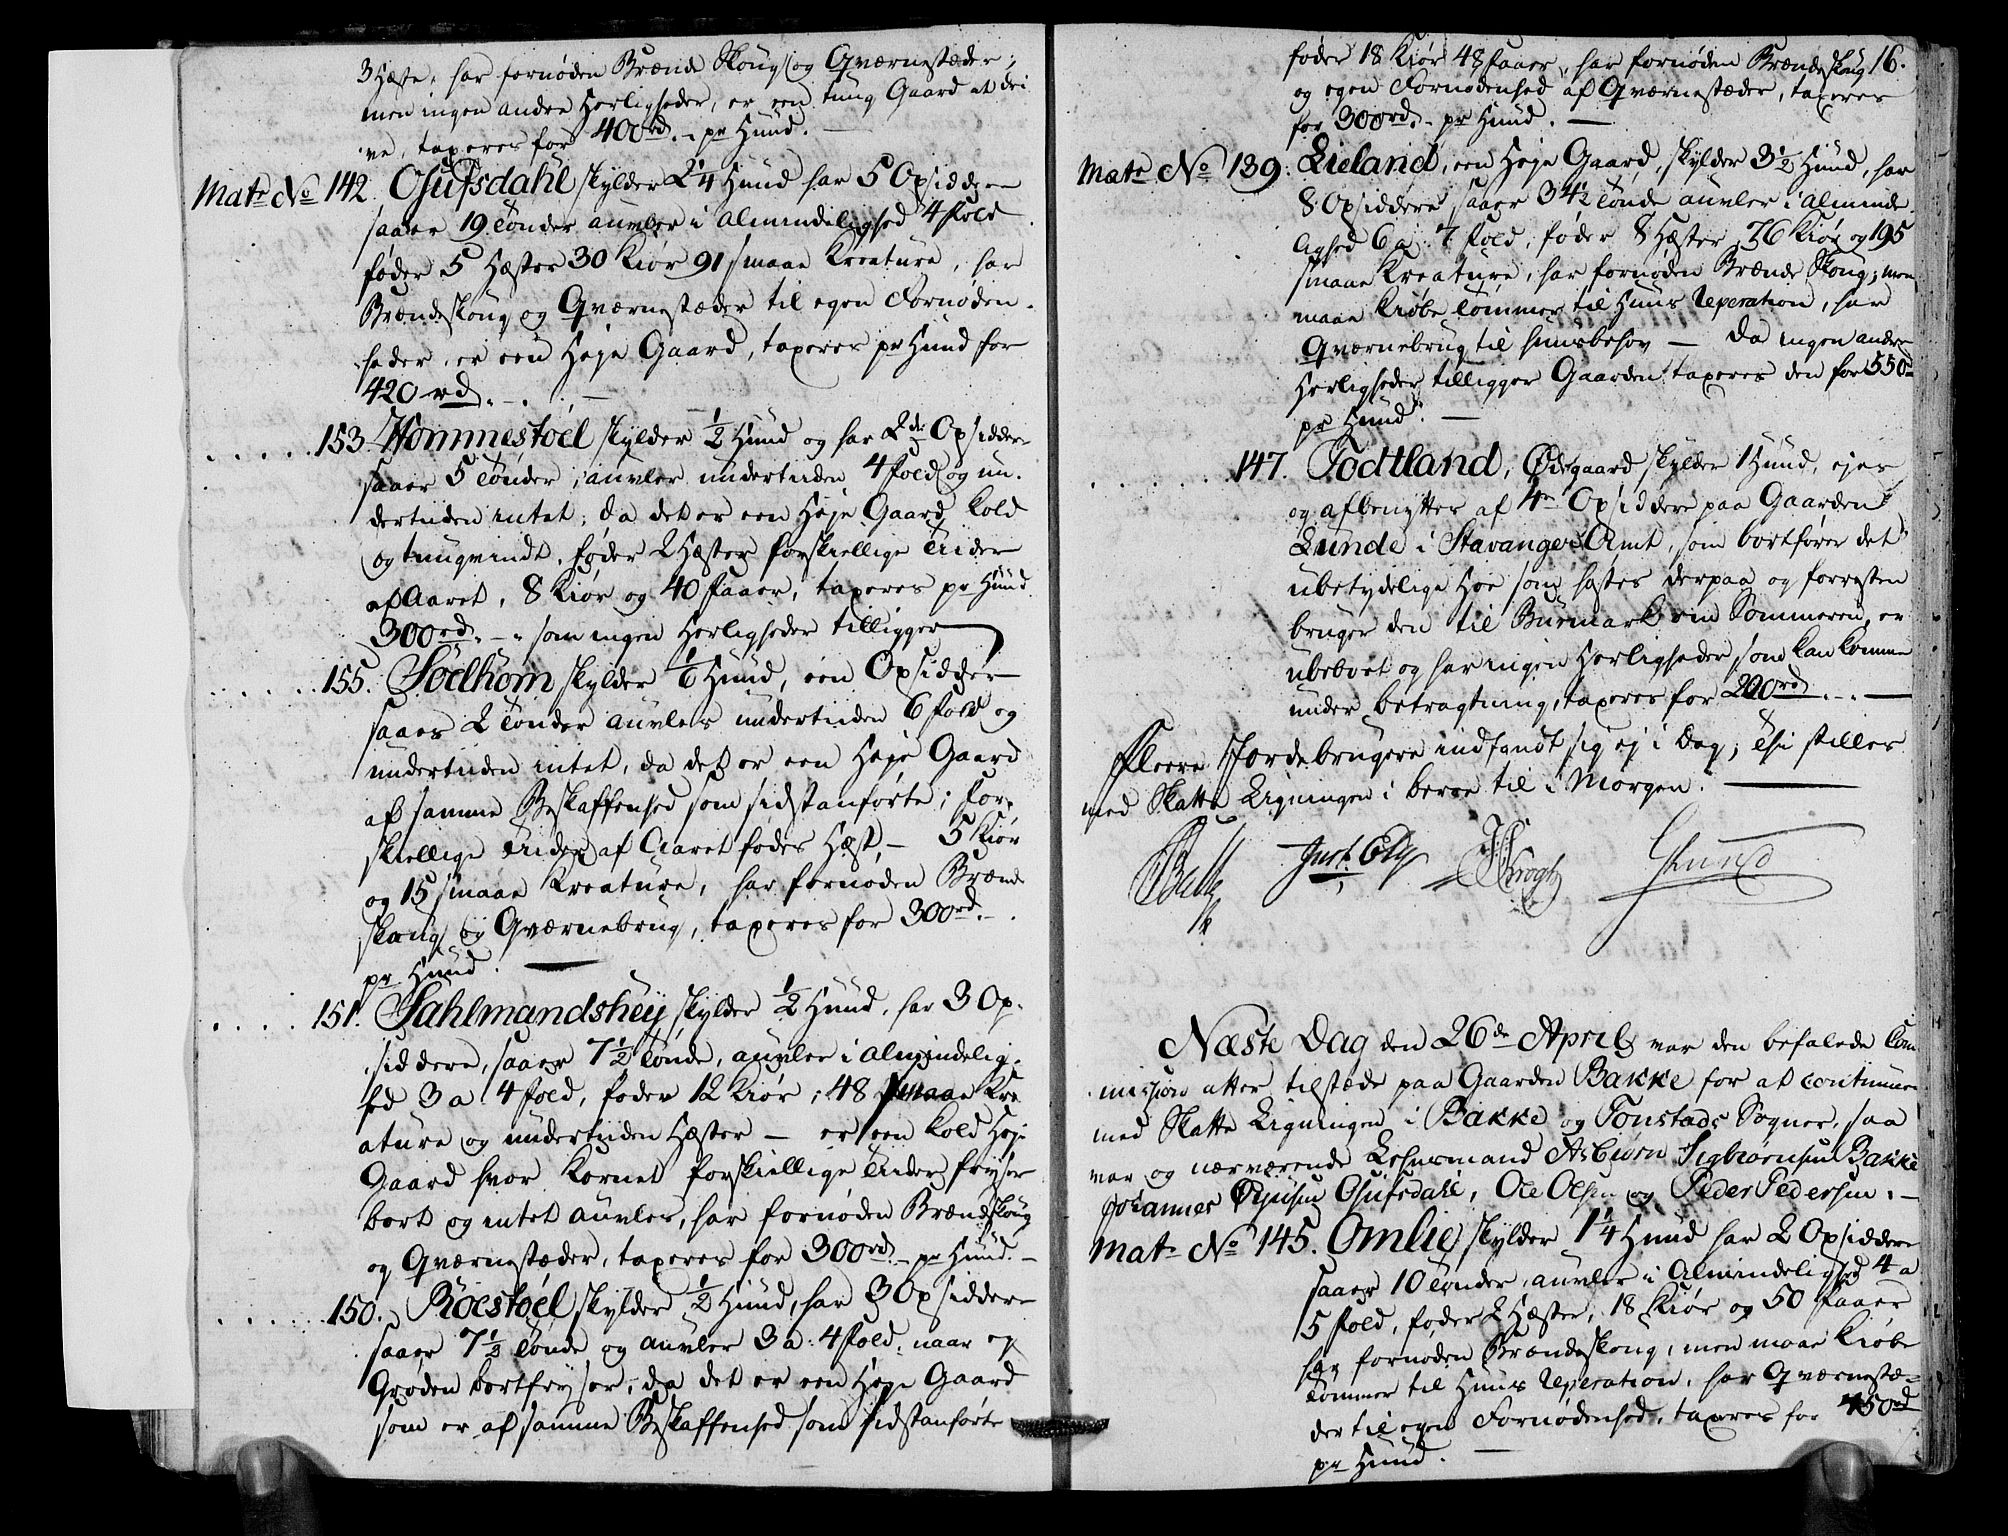 3 Hæste, har fornøden Brænde Skoug og Qværnestæder;
men ingen andre Herligheder, er een tung Gaard at dri
ve, taxeres for 400rd. - pr Huud. —
Matr No 142. Osufsdahl skylder 2 1/4 Huud har 5 Opsiddere
saaer 19 Tønder auvler i Almindelighed 4 fold
føder 5 Hæster 30 Kiør 91 smaae Kreature, har
Brændeskoug og Qværnestæder til egen Fornøden-
heder, er een Heje Gaard, taxeres pr Huud for
420 rd. - . —
. . . . . 153. Hommestøel skylder 1/2 Huud og har 2de Opsiddere
saaer 5 Tønder, auvler undertiden 4 fold og un-
dertiden intet; da det er een Heje Gaard, kold
og tungvindt, føder 2 Hæster forskiellige Tider
af Aaret, 8 Kiør og 40 Faaer, taxeres pr Huud
300rd. - . som ingen Herligheder tilligger
. . . . . 155. Sødlhom skylder 1/6 Huud, een Opsidder
saaer 2 Tønder auvler undertiden 6 fold og
undertiden intet, da det er een Heje Gaard
af samme Beskaffenhed som sidstanførte; for-
skiellige Tider af Aaret føder Hæst, — 5 Kiør
og 15 smaae Kreature, har fornøden Brænde
skoug og Qværnebrug, taxeres for 300rd. - .
pr Huud. —
. . . . . 151. Sahlmandshey skylder 1/2 Huud, har 3 Op-
siddere, saaer 7 1/2 Tønde, auvler i Almindelig-
hed 3 a 4 fold, føder 12 Kiør, 48 smaae Kre
ature og undertiden Hæster — er een kold Heje
Gaard hvor Kornet forskiellige Tider fryser
bort og intet auvles, har fornøden Brændeskoug
og Qværnestæder, taxeres for 300rd. - pr Huud. —
. . . . . 150. Røestøel skylder 1/2 Huud, har 3 Opsiddere
saaer 7 1/2 Tønde og auvler 3 a 4 fold, naar ej
Grøden bortfryser, da det er een Heje Gaard
som er af samme Beskaffenhed som sidstanførte
føder 18 Kiør 48 Faaer, har fornøden Brændeskoug 16.
og egen Fornødenhed af Qværnestæder, taxeres
for 300rd. - pr Huud. —
Matr No 139. Lieland, een Heje Gaard, skylder 3 1/2 Huud, har
8 Opsiddere, saaer 34 1/2 Tønde auvler i Alminde
lighed 6 a 7 fold, føder 8 Hæster 76 Kiør og 195
smaae Kreature, har fornøden Brænde Skoug; men
maae kiøbe Tømmer til Huus Reperation, har
Qværnebrug til huusbehov — Da ingen andre
Herligheder tilligger Gaarden taxeres den for 550rd
pr Huud. —
. . . . . 147. Todtland, Ødegaard skylder 1 Huud, ejes
og afbenyttes af 4re Opsiddere paa Gaarden
Lunde i Stavanger Amt, som bortfører det
ubetydelige Hoe som høstes derpaa og forresten
bruger den til Buemark om Sommeren, er
ubeboet og har ingen Herligheder, som kan komme
under betragtning, taxeres for 200rd. - . —
Fleere Jordebrugere indfandt sig ej i Dag; Thi stilles
med Skatte Ligningen i beroe til i Morgen. —
Krogh Lund
Næste Dag den 26de April var den befalede Com
mission atter tilstede paa Gaarden Bakke for at continuere
med Skatte Ligningen i Bakke og Tonstads Sogner, saa
var og nærværende Lehnsmand Asbiørn Sigbiørnsen Bakke
Johannes Osufsdahl, Ole Olsen og Peder Pedersen. —
Matr No 145. Omlie skylder 1 1/4 Huud har 2 Opsiddere
saaer 10 Tønder, auvler i Almindelighed 4 a
5 fold, føder 2 Hæster, 18 Kiør og 50 Faaer
har fornøden Brændeskoug, men maae kiøbe
Tømmer til Huus Reperation, har Qværnestæ-
der til egen Fornødenhed, taxeres for 450rd
pr Huud. —